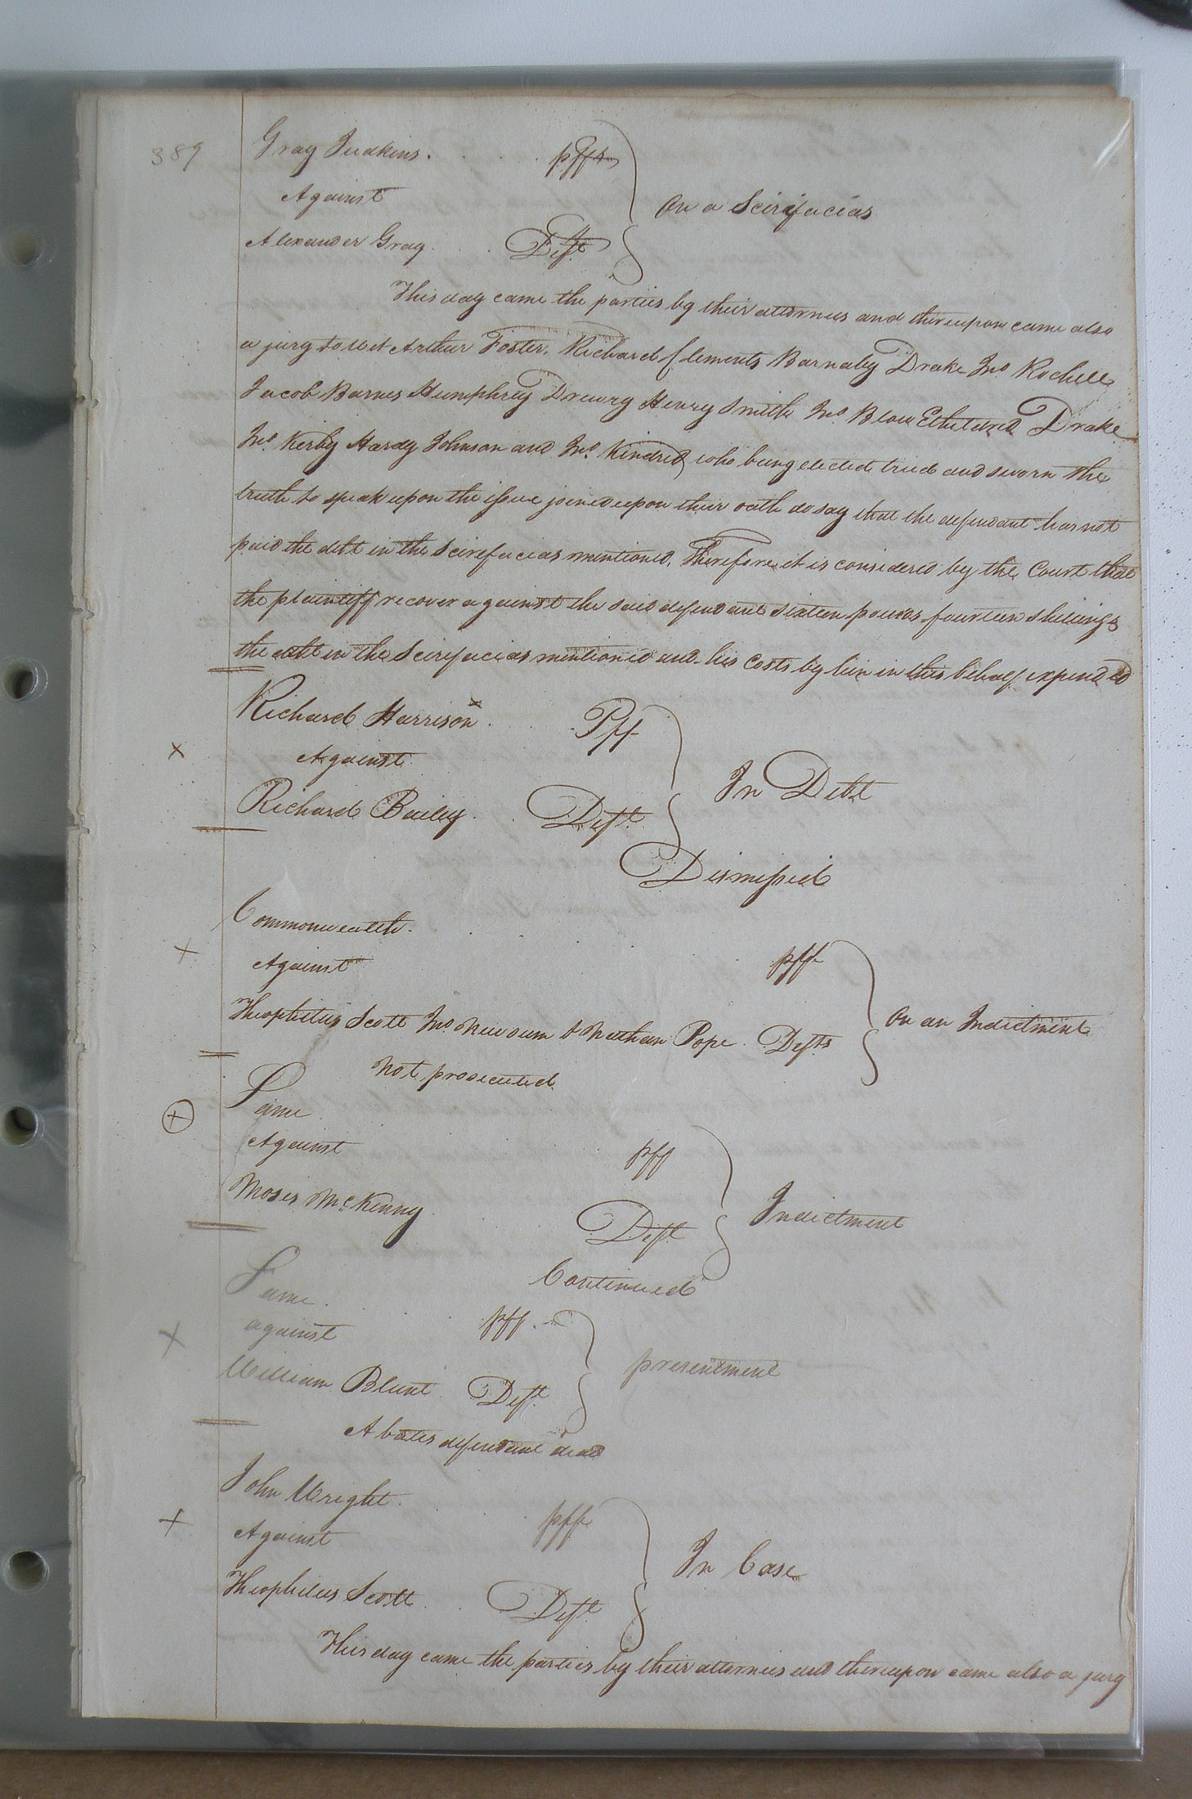 389
Gray Judkins. pff
Against
On a Scirefacias
Alexander Gray. Deft
This day came the parties by their attornies and thereupon came also
a jury to wit Arthur Foster, Richard Clements Barnaby Drake Jno Rochell
Jacob Barnes Humphrey Drewry Henry Smith Jno Blow Etheldred Drake
Jno. Kerby Hardy Johnson and Jno. Kindred who being elected tried and sworn the
truth to speak upon the issue joined upon their oath do say that the defendant has not
paid the debt in the Scirefacias mentioned, Therefore it is considered by the Court that
the plaintiff recover against the said defendant sixteen pounds fourteen shillings
the debt in the Scirefacias mentioned and his costs by him in this behalf expended
Richard Harrison Pff
x Against
In Debt
Richard Bailey. Deft
Dismissed
Commonwealth.
x Against pff
Theophilus Scott Jno Newsum & Nathan Pope Defts On an Indictment
not prosecuted
Same
x Against pff
Moses McKenny Deft Indictment
Continued
Same. pff
x against
presentment
William Blunt Deft
Abates defendant dead
John Wright. pff
x Against
In Case
Theophilus Scott Deft
This day came the parties by their attornies and thereupon came also a jury